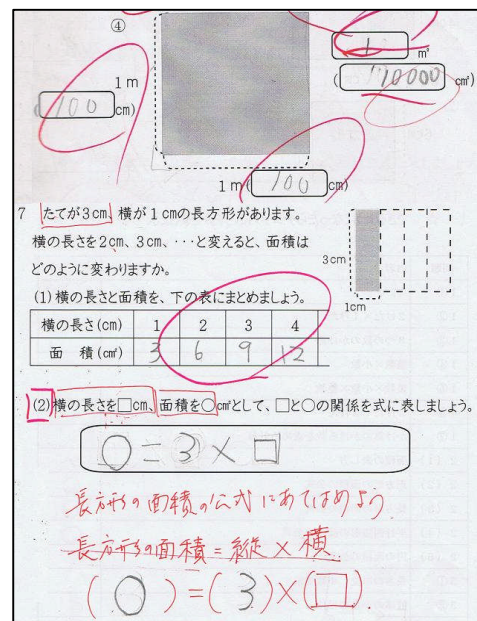 ④
1 m
(100 cm)
1 m²
(10000 cm²)
1 m (100 cm)
7 たてが3cm、横が1cmの長方形があります。
横の長さを2cm、3cm、･･･と変えると、面積は
どのように変わりますか。
3cm
1cm
(1) 横の長さと面積を、下の表にまとめましょう。
横の長さ(cm) 1 2 3 4
面 積(cm²) 3 6 9 12
(2) 横の長さを□cm、面積を○cm²として、□と○の関係を式に表しましょう。
○=3×□
長方形の面積の公式にあてはめよう
長方形の面積=縦×横
(○)=(3)×(□).